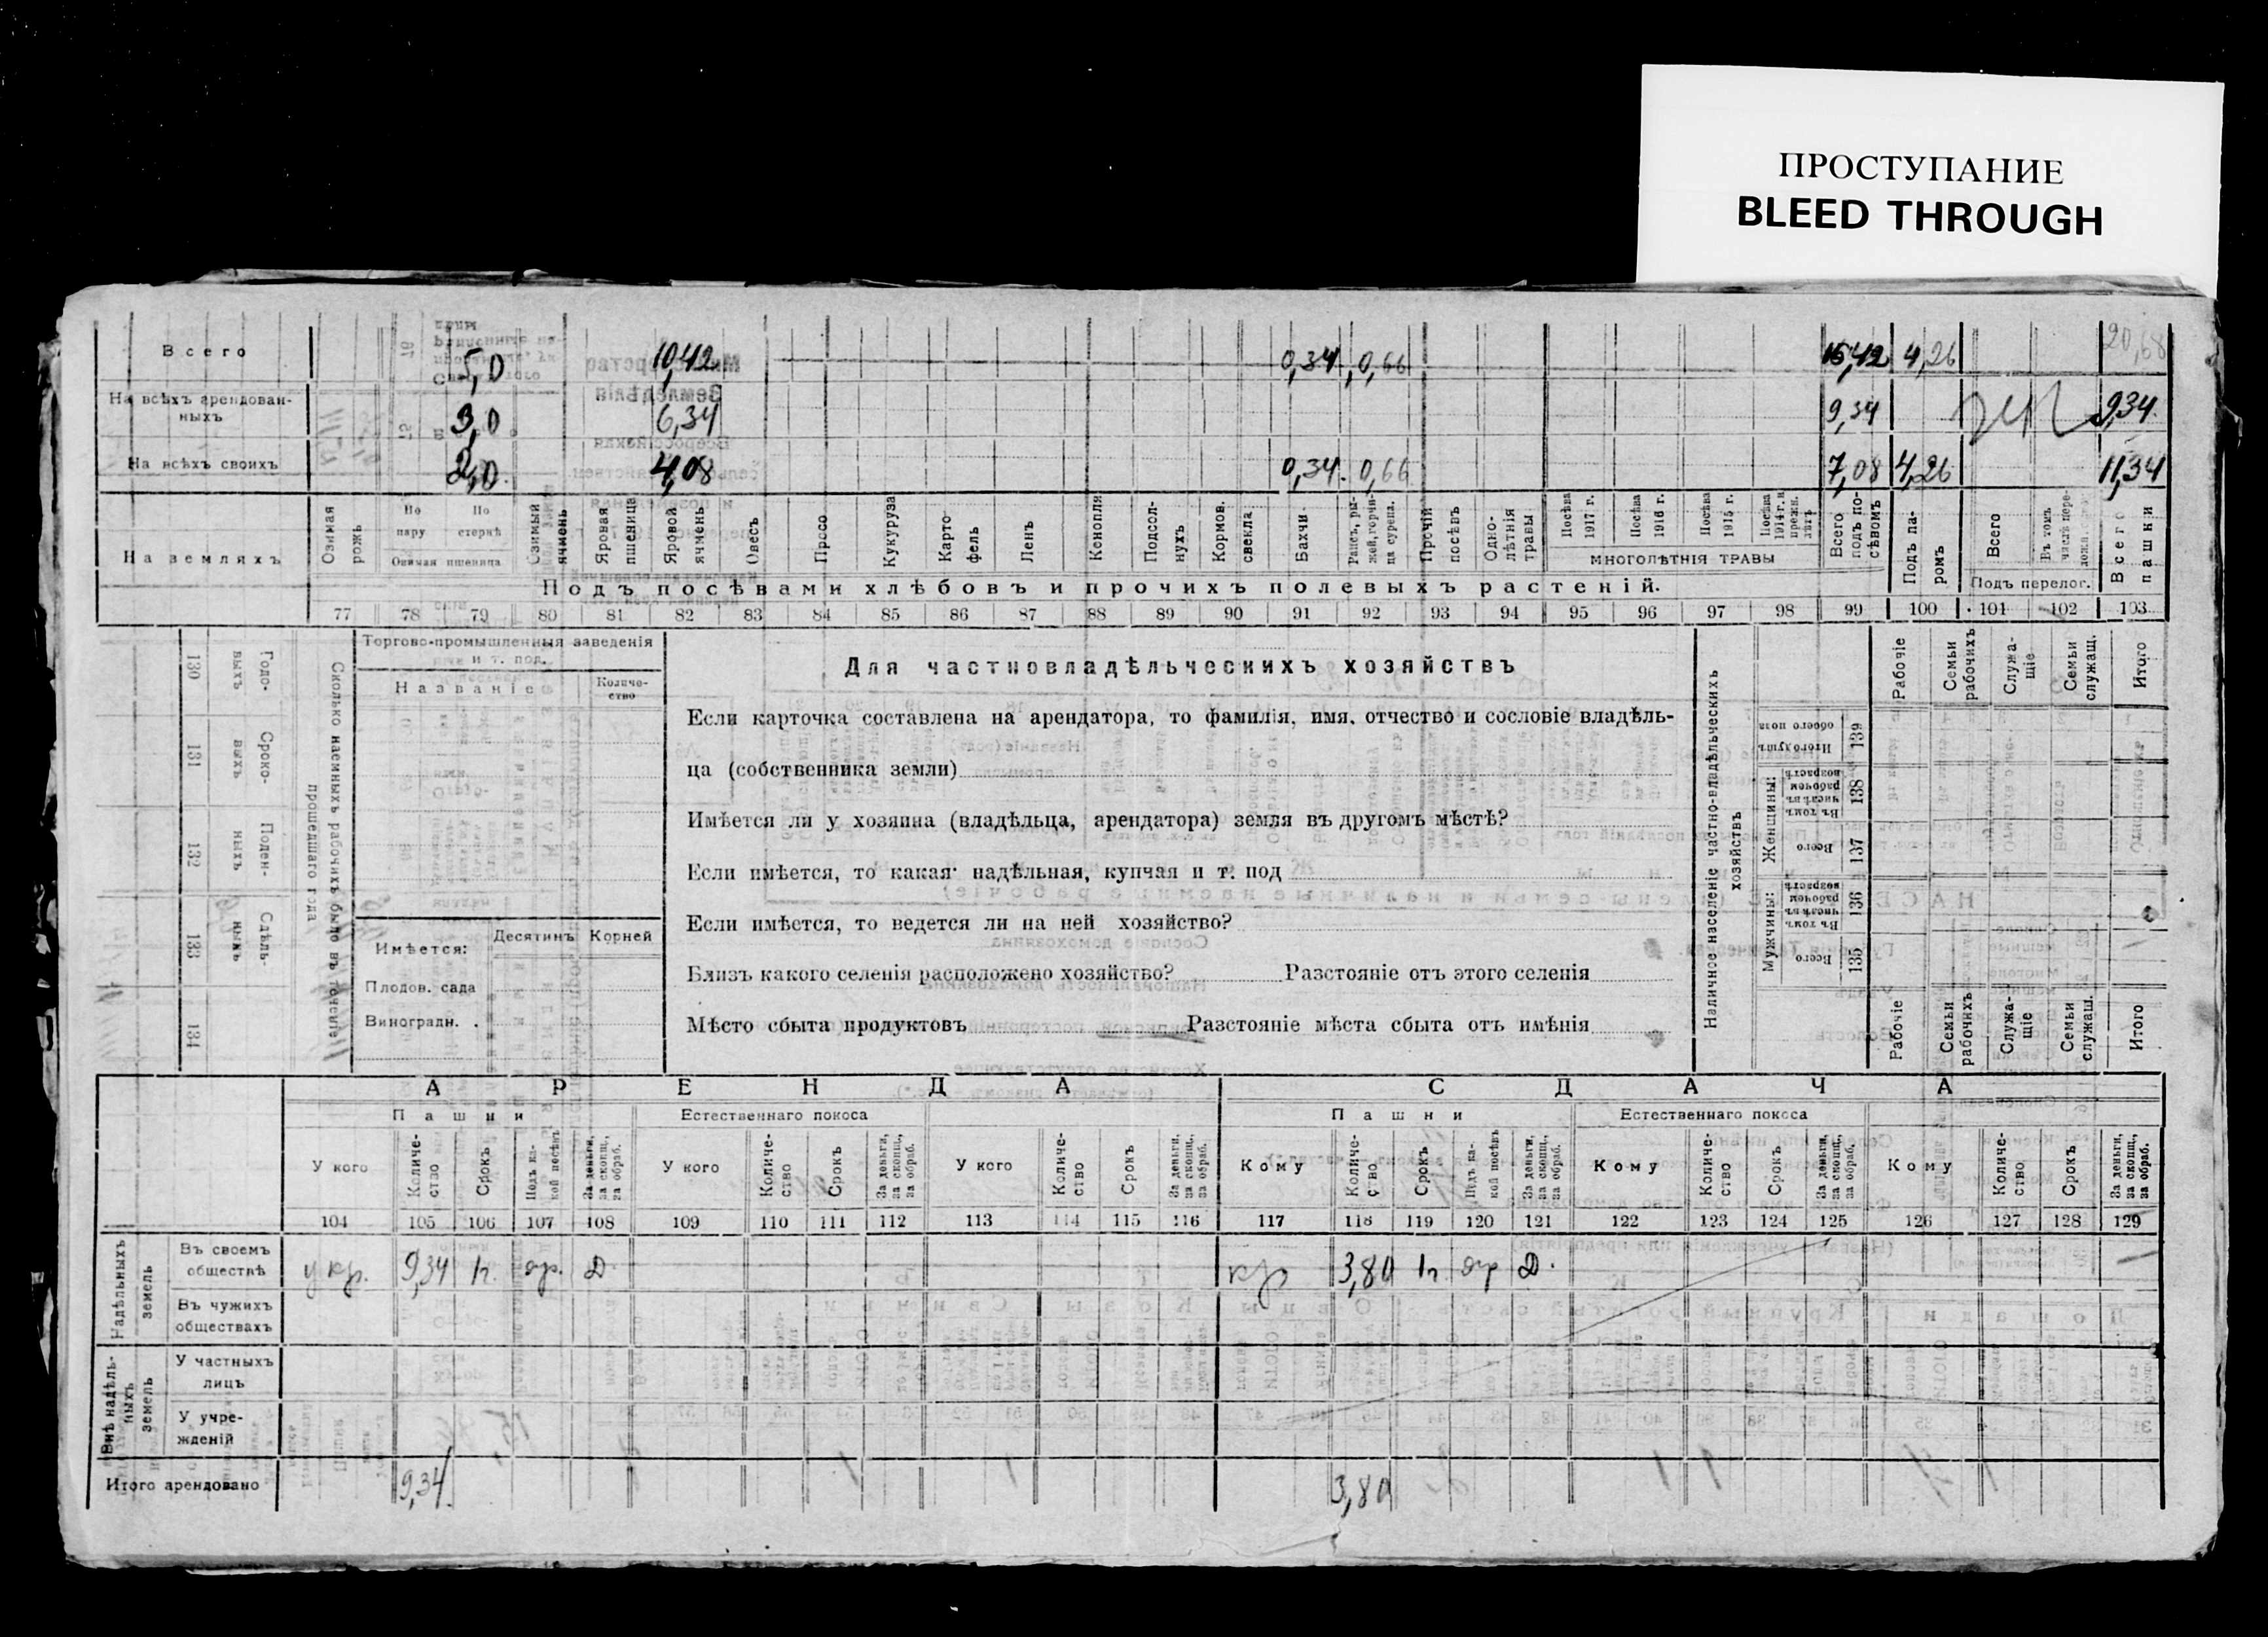 ПРОСТУПАНИЕ
BLEED THROUGH
Всего 5,0 10,42 0,34 0,66 4,26 20,68
На всѣхъ арендованныхъ 3,0 6,34 9,34 9,34
На всѣхъ своихъ 2,0 4,08 0,34 0,66 7,08 4,26 11,34
На земляхъ
Озимая рожь
По пару
По стернѣ
Озимая пшеница
Озимый ячмень
Яровая пшеница
Яровой ячмень
Овесъ
Просо
Кукуруза
Картофель
Ленъ
Конопля
Подсолнухъ
Кормов. свекла
Бахчи
Рапсъ, рыжей, горчица сурепа.
Прочій посѣвъ
Однолѣтнія травы
Посѣва 1917 г.
Посѣва 1916 г.
Посѣва 1915 г.
Посѣва 1914 г. и прежн. лѣтъ
МНОГОЛѢТНІЯ ТРАВЫ
Всего подъ посѣвомъ
Подъ паромъ
Всего
Въ томъ числѣ
Подъ перелог.
Всего пашни
Подъ посѣвами хлѣбовъ и прочихъ полевыхъ растеній.
77 78 79 80 81 82 83 84 85 86 87 88 89 90 91 92 93 94 95 96 97 98 99 100 101 102 103
Сколько наемныхъ рабочихъ было въ теченіе прошедшаго года
Годовыхъ 130
Сроковыхъ 131
Поденныхъ 132
Сдѣльныхъ 133
134
Торгово-промышленныя заведенія и т. под.
Названіе
Количество
Имѣется:
Десятинъ Корней
Плодов. сада
Виноградн. .
Для частновладѣльческихъ хозяйствъ
Если карточка составлена на арендатора, то фамилія, имя, отчество и сословіе владѣль-
ца (собственника земли)
Имѣется ли у хозяина (владѣльца, арендатора) земля въ другомъ мѣстѣ?
Если имѣется, то какая: надѣльная, купчая и т. под
Если имѣется, то ведется ли на ней хозяйство?
Близъ какого селенія расположено хозяйство? Разстояніе отъ этого селенія
Мѣсто сбыта продуктовъ Разстояніе мѣста сбыта отъ имѣнія
Наличное населеніе частно-владѣльческихъ хозяйствъ
Рабочіе
Семьи рабочихъ
Служащіе
Семьи служащ.
Итого
Итого душъ обоего пола 139
Женщины:
Въ томъ числѣ въ рабочем возрастѣ 138
Всего 137
Мужчины:
Въ томъ числѣ въ рабочем возрастѣ 136
Всего 135
Рабочіе
Семьи рабочихъ
Служащіе
Семьи служащ.
Итого
АРЕНДА СДАЧА
Пашни Естественнаго покоса Пашни Естественнаго покоса
У кого Количество Срокъ Подъ какой посѣвъ За деньги, за скопщ., за обраб.
У кого Количество Срокъ За деньги, за скопщ., за обраб.
У кого Количество Срокъ За деньги, за скопщ., за обраб.
Кому Количество Срокъ Подъ какой посѣвъ За деньги, за скопщ., за обраб.
Кому Количество Срокъ За деньги, за скопщ., за обраб.
Кому Количество Срокъ За деньги, за скопщ., за обраб.
104 105 106 107 108 109 110 111 112 113 114 115 116 117 118 119 120 121 122 123 124 125 126 127 128 129
Надѣльныхъ земель
Въ своемъ обществѣ у кр. 9,34 Д. кр 3,80 Д.
Въ чужихъ обществахъ
Внѣ надѣльныхъ земель
У частныхъ лицъ
У учрежденій
Итого арендовано 9,34 3,80